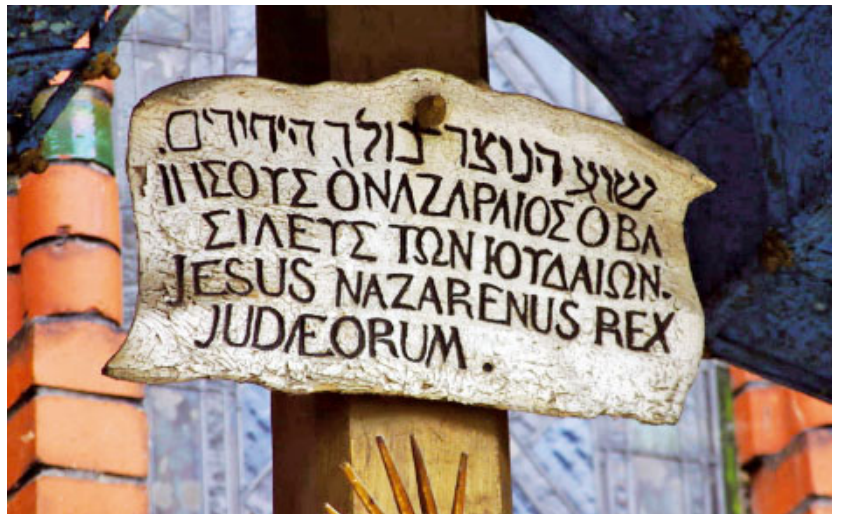 ישוע הנוצר מולך היהורים.
ΙΗΣΟΥΣ Ὁ ΝΑΖΑΡΑΙΟΣ Ο ΒΑ
ΣΙΛΕΥΣ ΤΩΝ ΙΟΥΔΑΙΩΝ.
JESUS NAZARENUS REX
JUDÆORUM.